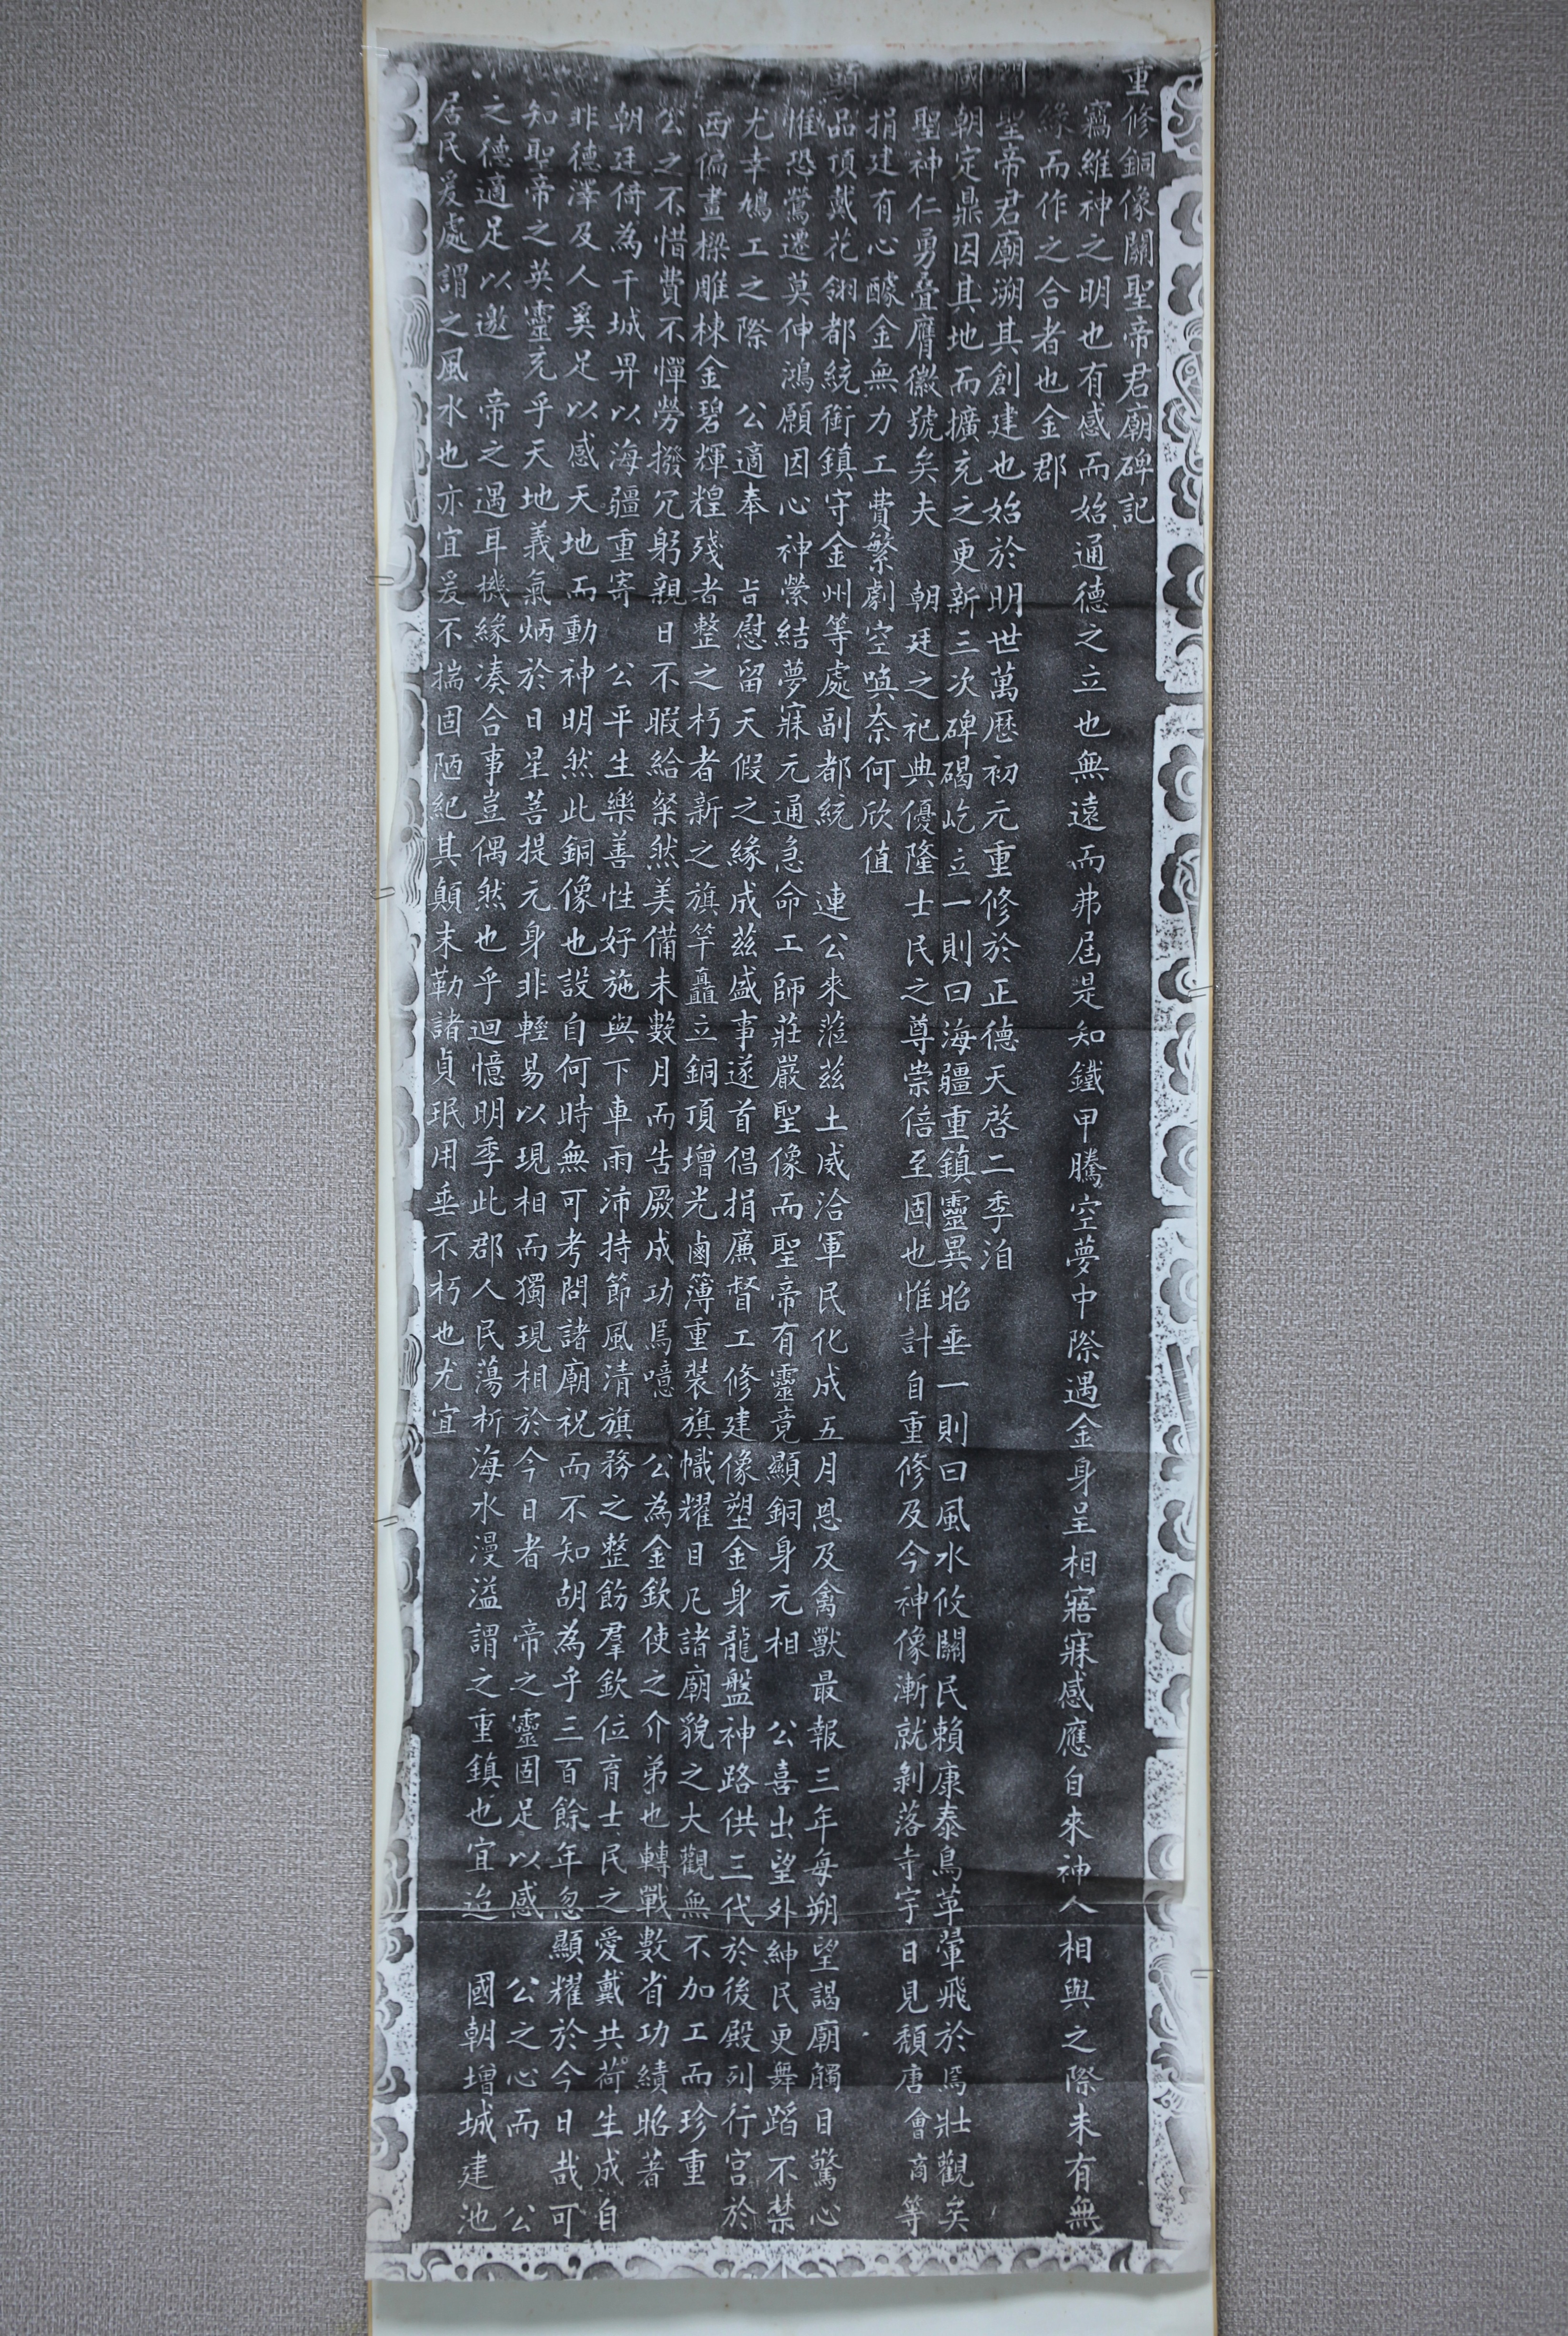 重修銅像關聖帝君廟碑記
竊維神之明也有感而始通德之立也無遠而弗屆是知鐵甲騰空夢中際遇金身呈相寤寐感應自來神人相與之際未有無
緣而作之合者也金郡
關聖帝君廟溯其創建也始於明世萬歷初元重修於正德天啓二季洎
國朝定鼎因其地而擴充之更新三次碑碣屹立一則曰海疆重鎮靈異昭垂一則曰風水攸關民賴康泰鳥革翬飛於焉壯觀矣
聖神仁勇疊膺徽號矣夫 朝廷之祀典優隆士民之尊崇倍至固也惟計自重修及今神像漸就剝落寺宇日見頹唐會商等
捐建有心醵金無力工費繁劇空喚奈何欣值
品頂戴花翎都統銜鎮守金州等處副都統 連公來蒞茲土威洽軍民化成五月恩及禽獸最報三年每朔望謁廟觸目驚心
惟恐鶯遷莫伸鴻願因心神縈結夢寐元通急命工師莊嚴聖像而聖帝有靈竟顯銅身元相 公喜出望外紳民更舞蹈不禁
尤幸鳩工之際 公適奉 旨慰留天假之緣成茲盛事遂首倡捐廉督工修建像塑金身龍盤神路供三代於後殿列行宮於
西偏畫樑雕棟金碧輝煌殘者整之朽者新之旗竿矗立銅頂增光鹵簿重裝旗幟耀目凡諸廟貌之大觀無不加工而珍重
公之不惜費不憚勞撥冗躬親日不暇給粲然美備未數月而告厥成功焉噫 公為金欽使之介弟也轉戰數省功績昭著
朝廷倚為干城畀以海疆重寄 公平生樂善性好施與下車雨沛持節風清旗務之整飭羣欽位育士民之愛戴共荷生成自
非德澤及人奚足以感天地而動神明然此銅像也設自何時無可考問諸廟祝而不知胡為乎三百餘年忽顯耀於今日哉可
知聖帝之英靈充乎天地義氣炳於日星菩提元身非輕易以現相而獨現相於今日者 帝之靈固足以感 公之心而 公
之德適足以邀 帝之遇耳機緣湊合事豈偶然也乎迴憶明季此郡人民蕩析海水漫溢謂之重鎮也宜迨 國朝增城建池
居民爰處謂之風水也亦宜爰不揣固陋紀其顛末勒諸貞珉用垂不朽也尤宜